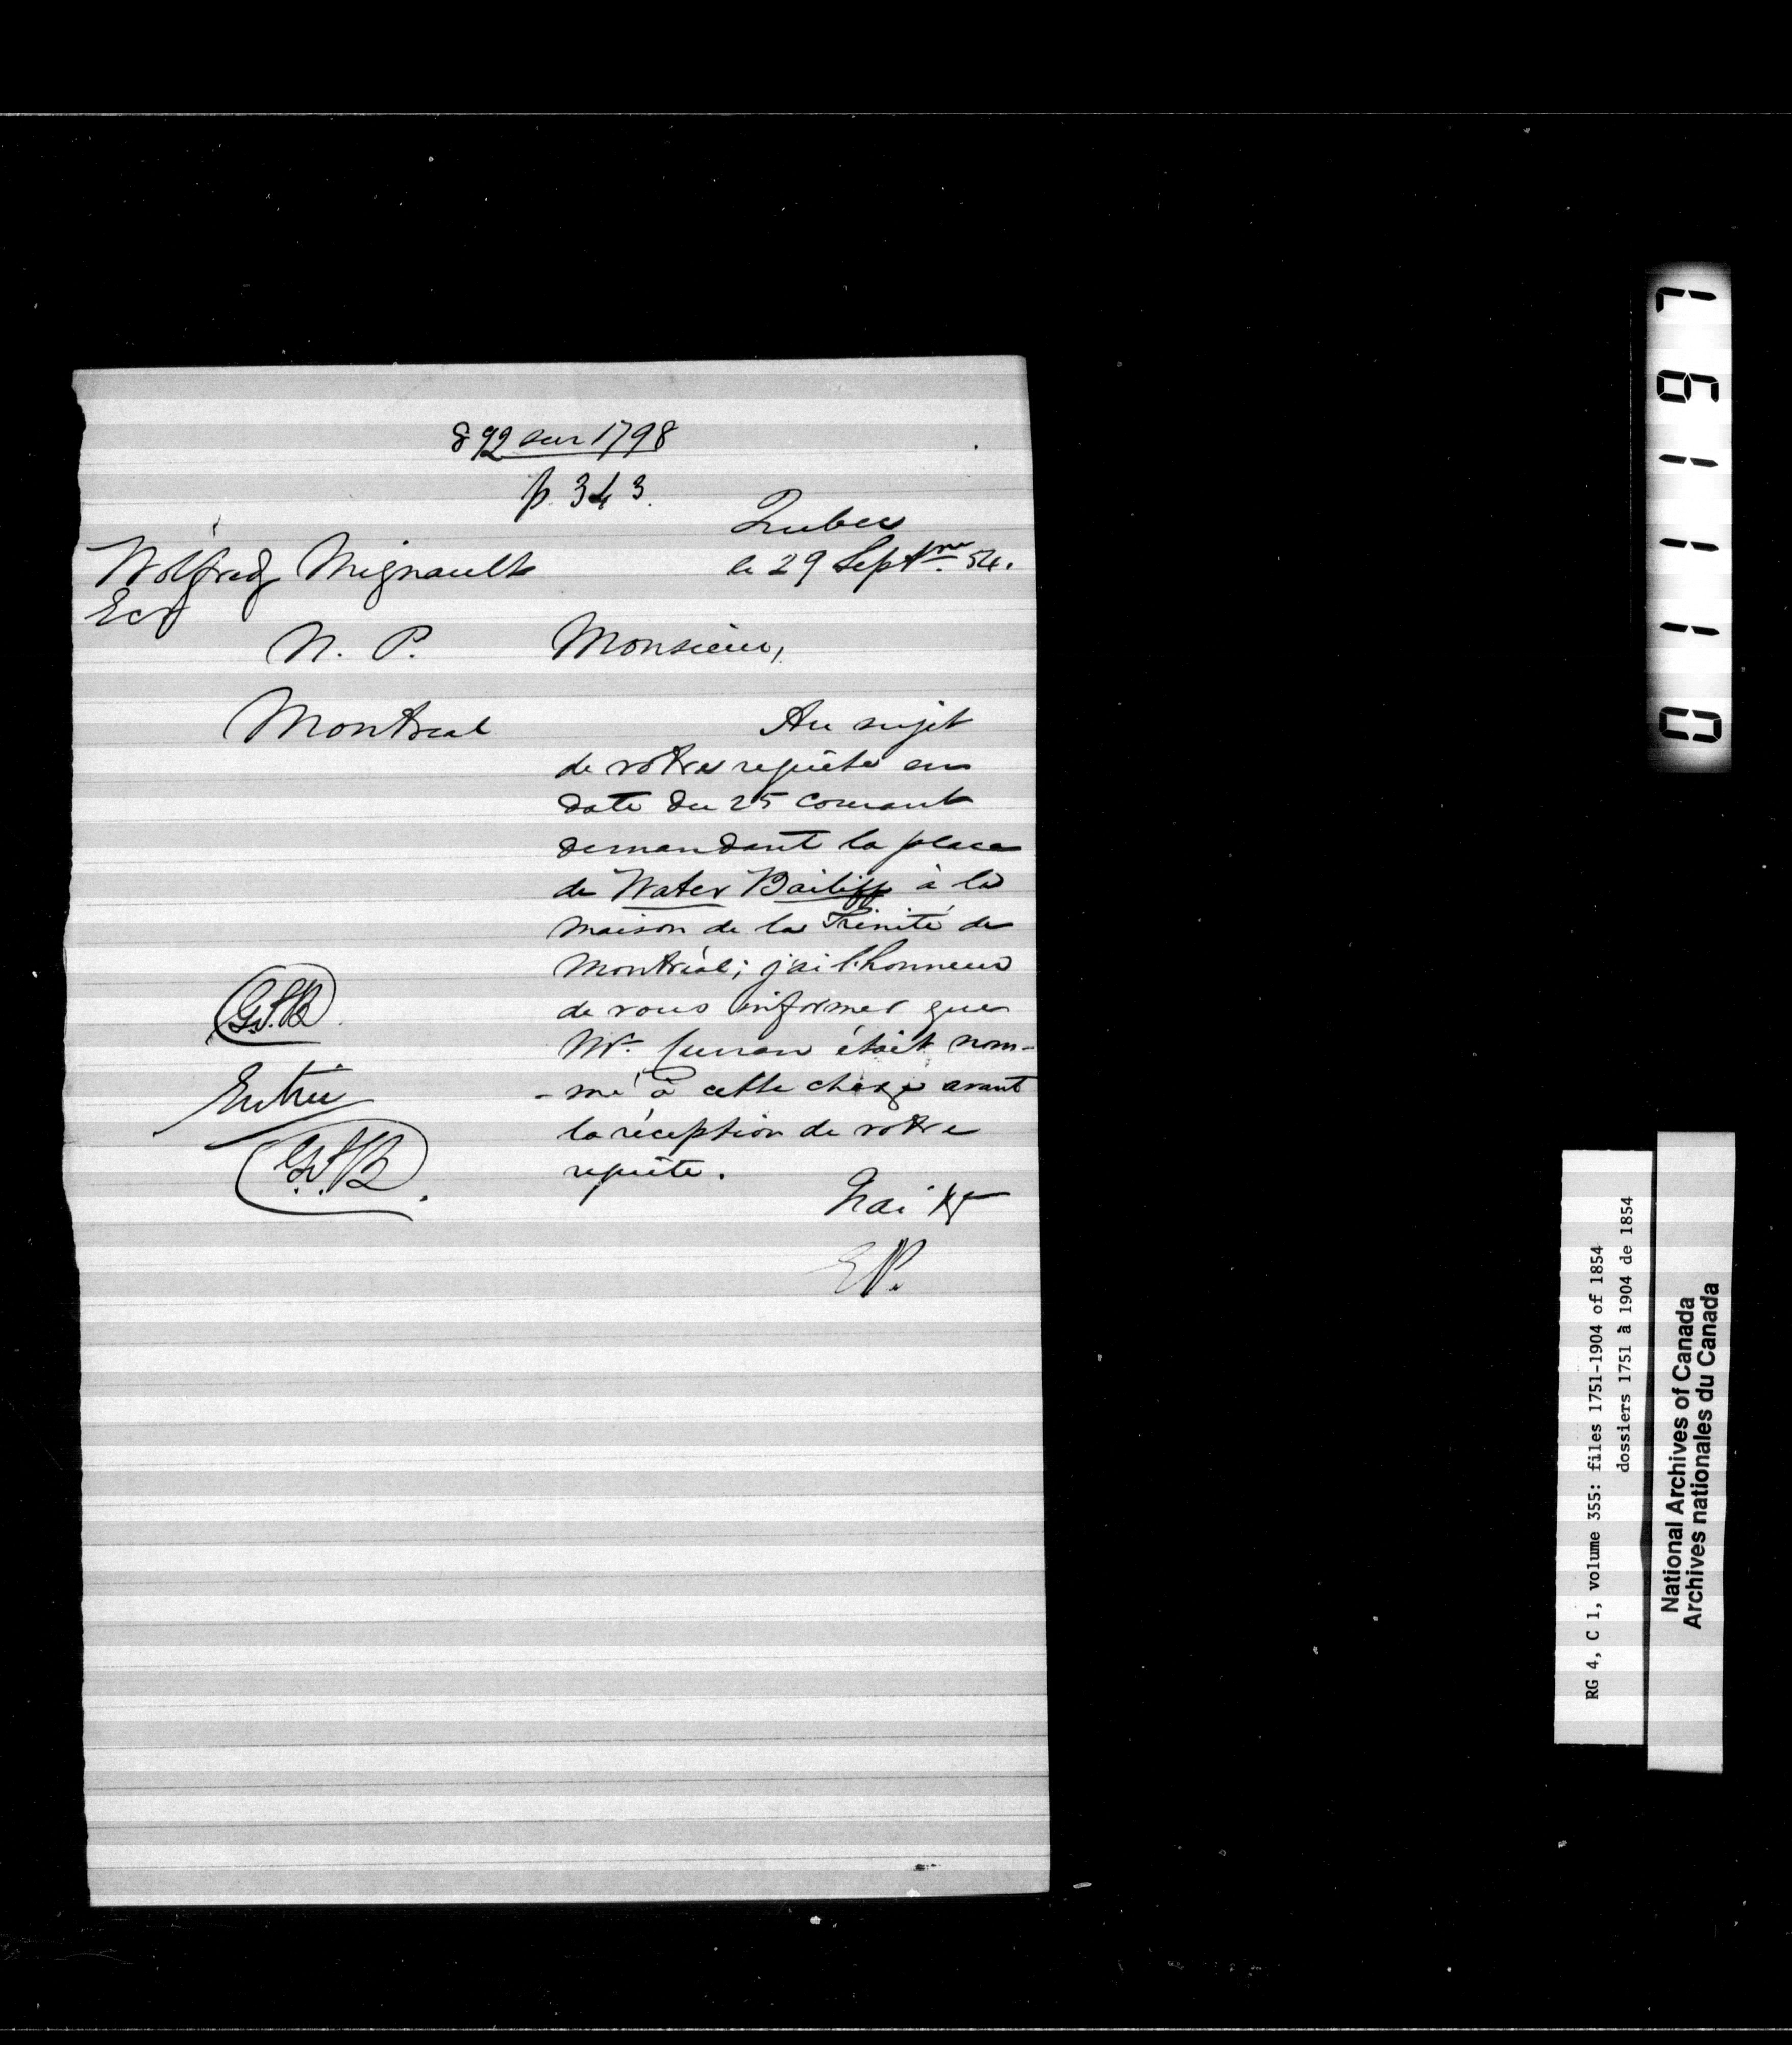 892 sur 1798
p. 343.
Quebec
le 29 Septme. 54.
Wolfred Mignault
Ecr
N. P.
Montreal
Monsieur,
Au sujet
de votre requête en
date du 25 courant
demandant la place
de Water Bailiff à la
maison de la Trinité de
Montréal; j'ai l'honneur
de vous informer que
Mr. était nom-
-mé à cette charge avant
la réception de votre
requête.
J'ai &c
E P.
Entrée
01111971
RG 4, C 1, volume 355: files 1751-1904 of 1854
dossiers 1751 à 1904 de 1854
National Archives of Canada
Archives nationales du Canada